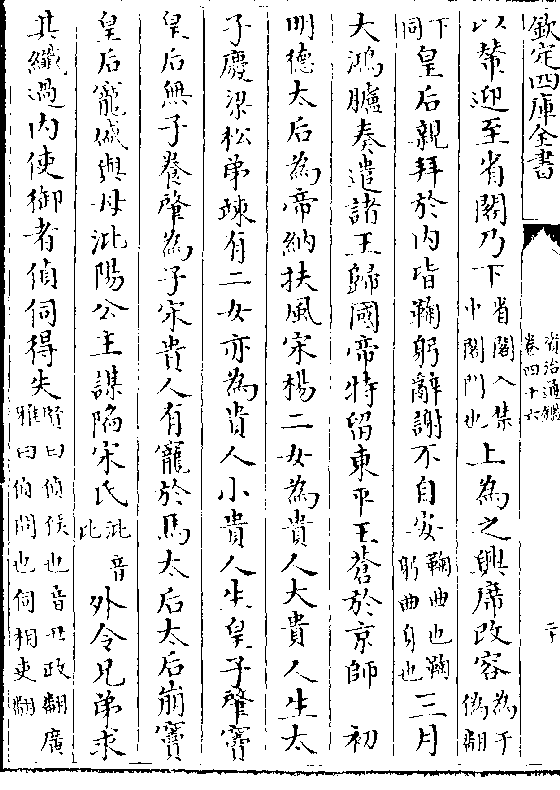 欽定四庫全書
資治通鑑
卷四十六
二十
以輦迎至省閤乃下省閤入禁中閤門也上為之興席改容為于偽翻
下同皇后親拜於内皆鞠躬辭謝不自安鞠曲也鞠躬曲身也三月
大鴻臚奏遣諸王歸國帝特留東平王蒼於京師　初
明德太后為帝納扶風宋楊二女為貴人大貴人生太
子慶梁松弟竦有二女亦為貴人小貴人生皇子肇竇
皇后無子養肇為子宋貴人有寵於馬太后太后崩竇
皇后寵盛與母沘陽公主謀陷宋氏沘音比外令兄弟求
其纖過内使御者偵伺得失賢曰偵候也音丑政翻廣雅曰偵問也伺相吏翻